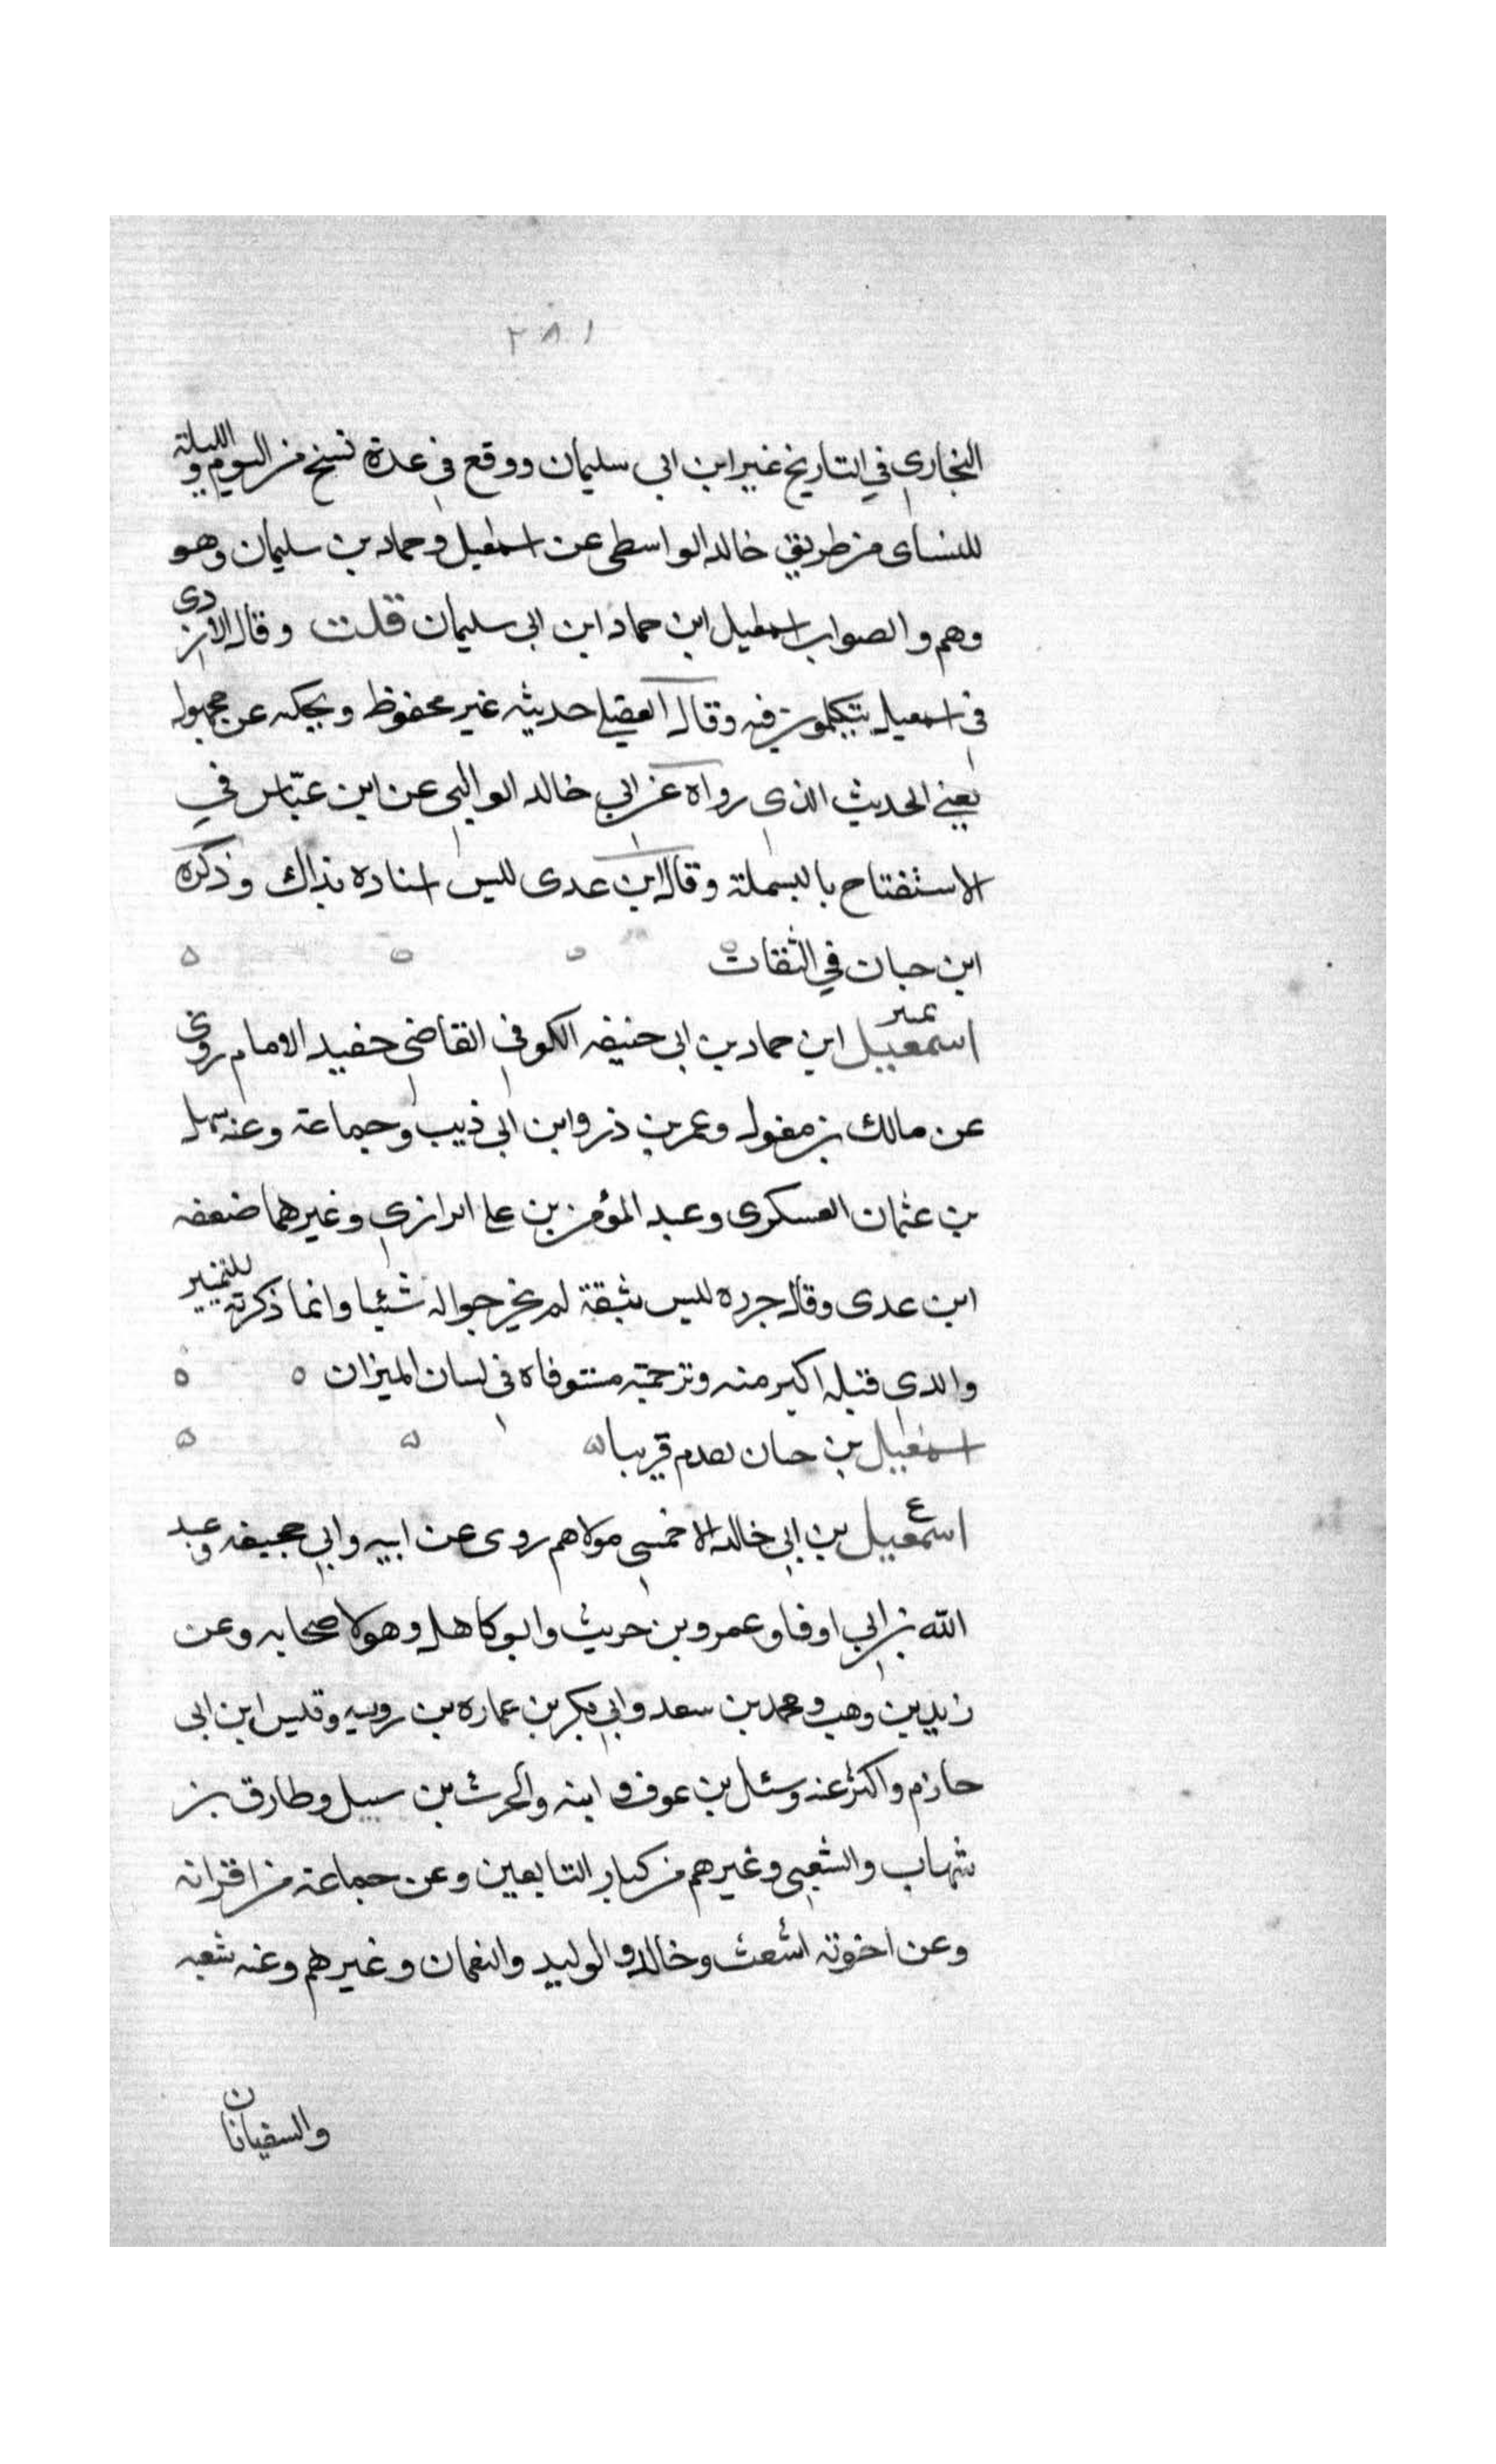 ٢٨١
البخاري في التاريخ غير ابن ابى سليمان ووقع في عدة نسخ من اليوم والليلة
للنساى من طريق خالد الواسطى عن اسمعيل وحماد بن سليمان وهو
وهم والصواب اسمعيل ابن حماد ابن ابى سليمان قلت وقال الازدى
فى اسمعيل يتكلمون فيه وقال العقيلى حديثه غير محفوظ ويحكيه عن مجهول
يعنى الحديث الذى رواه عن ابي خالد الوالبى عن ابن عباس في
الاستفتاح بالبسملة وقال ابن عدى ليس اسناده بذاك وذكره
ابن حبان في الثقات
اسمعيل ابن حماد بن ابى حنيفه الكوفى القاضى حفيد الامام روى
عن مالك بن مغول وعمر بن ذر وابن ابى ذيب وجماعة وعنه سهل
بن عثمان العسكرى وعبد المؤمن بن على الرازي وغيرهما ضعفه
ابن عدى وقال جزره ليس بثقة لم يخرجوا له شيئا وانما ذكرته للتمييز
والدى قبله اكبر منه وترجمته مستوفاة فى لسان الميزان
اسمعيل بن حبان تقدم قريبا
ع
اسمعيل بن ابي خالد الاحمسى مولاهم روى عن ابيه وابي جحيفه وعبد
الله بن ابي اوفا وعمرو بن حريث وابو كاهل وهولا صحابه وعن
زيد بن وهب ومحمد بن سعد وابي بكر بن عماره بن رويبه وقيس ابن ابى
حازم واكثر عنه وسئل بن عوف وابنه والحرث بن سبيل وطارق بن
شهاب والشعبى وغيرهم من كبار التابعين وعن جماعة من اقرانه
وعن اخوته اشعث وخالد والوليد والنعمان وغيرهم وعنه شعبه
والسفيانان